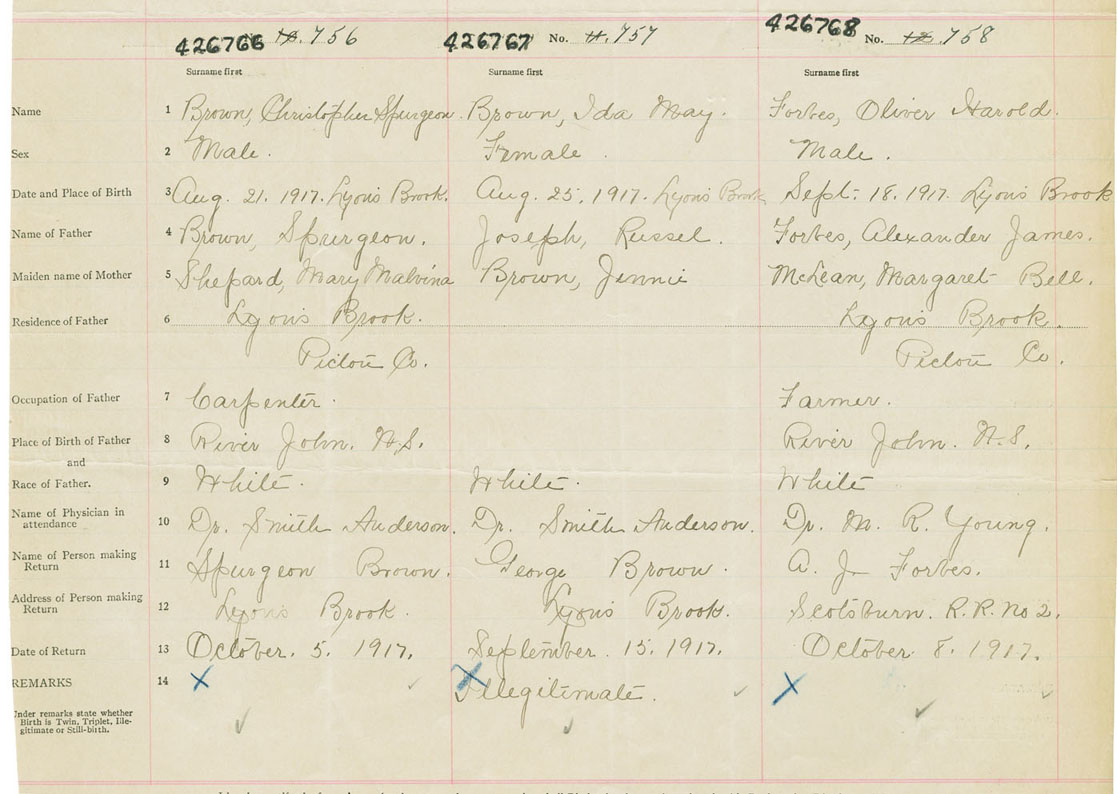 426766 No. 756 426767 No. 757 426768 No. 758
Surname first Surname first Surname first
Name 1 Brown, Christopher Spurgeon. Brown, Ida May. Forbes, Oliver Harold.
Sex 2 Male. Female. Male.
Date and Place of Birth 3 Aug. 21. 1917. Lyons Brook. Aug. 25, 1917. Lyons Brook Sept. 18. 1917. Lyons Brook
Name of Father 4 Brown, Spurgeon. Joseph, Russel. Forbes, Alexander James.
Maiden name of Mother 5 Shepard, Mary Malvina Brown, Jennie McLean, Margaret Bell.
Residence of Father 6 Lyons Brook. Lyons Brook.
Pictou Co. Pictou Co.
Occupation of Father 7 Carpenter. Farmer.
Place of Birth of Father 8 River John. N.S. River John. N.S.
and
Race of Father. 9 White. White. White
Name of Physician in
attendance 10 Dr. Smith Anderson. Dr. Smith Anderson. Dr. M. R. Young.
Name of Person making
Return 11 Spurgeon Brown. George Brown. A. J. Forbes.
Address of Person making
Return 12 Lyons Brook. Lyons Brook. Scotsburn. R.R. No 2.
Date of Return 13 October. 5. 1917. September. 15. 1917. October 8. 1917.
REMARKS 14 X Illegitimate. X
Under remarks state whether
Birth is Twin, Triplet, Ille-
gitimate or Still-birth.